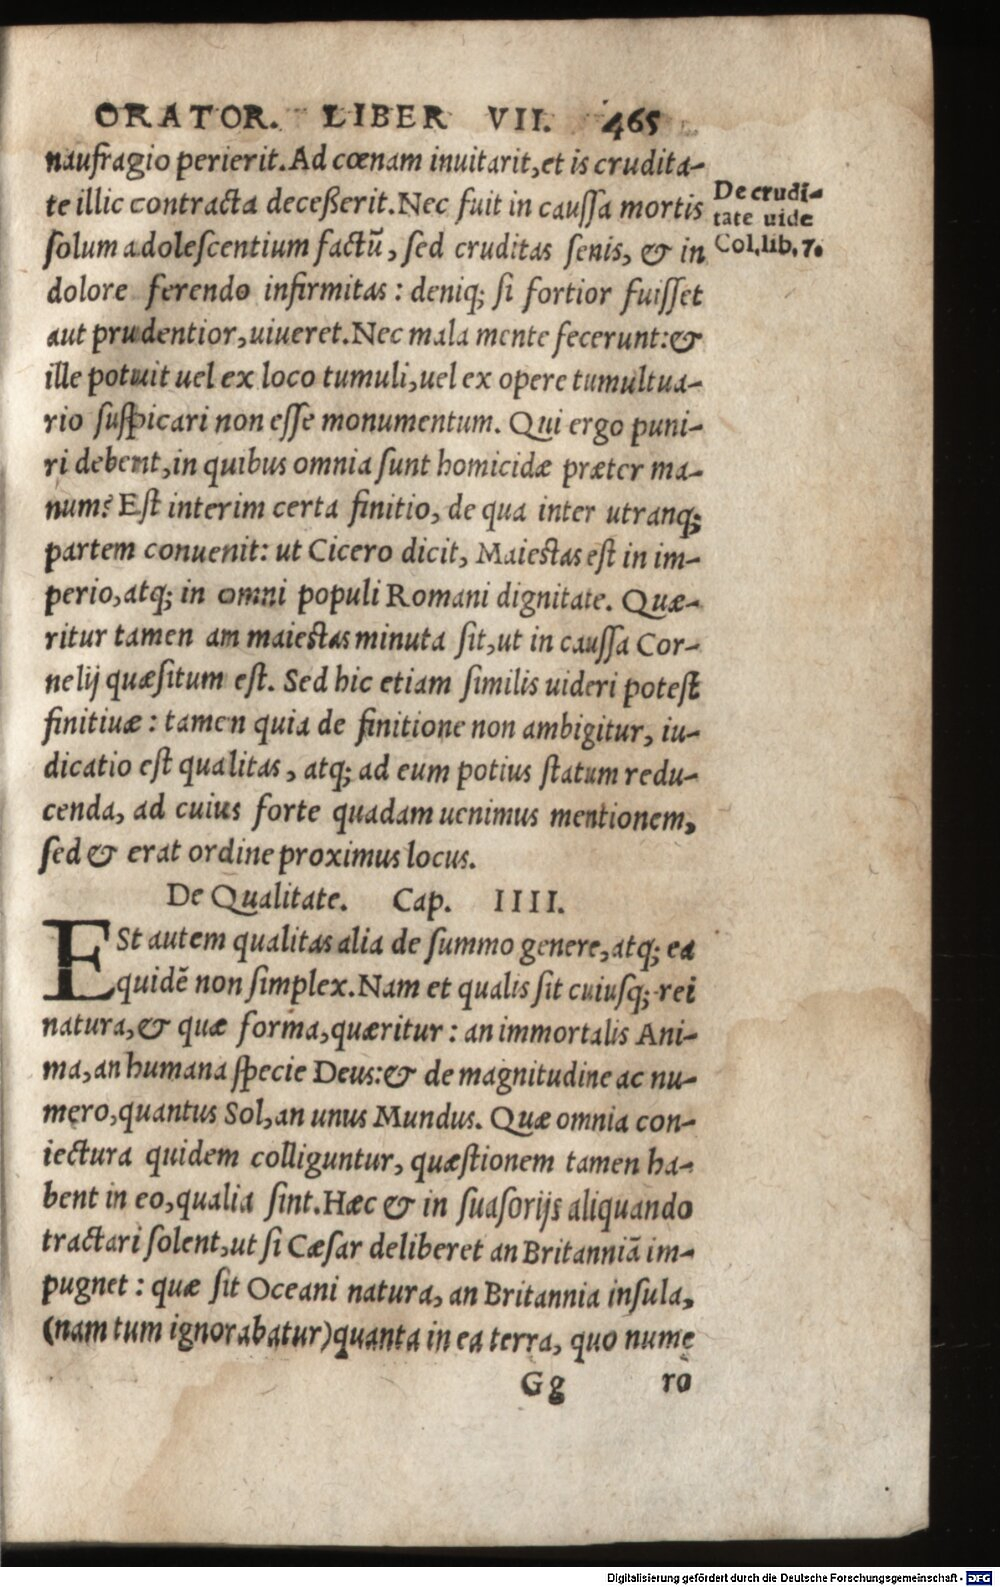 ORATOR. LIBER VII. 465
naufragio perierit. Ad cœnam inuitarit, et is crudita-
te illic contracta deceßerit. Nec fuit in caussa mortis
solum adolescentium factũ, sed cruditas senis, & in
dolore ferendo infirmitas: deniq; si fortior fuisset
aut prudentior, uiueret. Nec mala mente fecerunt: &
ille potuit uel ex loco tumuli, uel ex opere tumultua-
rio suspicari non esse monumentum. Qui ergo puni-
ri debent, in quibus omnia sunt homicidæ præter ma-
num? Est interim certa finitio, de qua inter utranq;
partem conuenit: ut Cicero dicit, Maiestas est in im-
perio, atq; in omni populi Romani dignitate. Quæ-
ritur tamen am maiestas minuta sit, ut in caussa Cor-
nelij quæsitum est. Sed hic etiam similis uideri potest
finitiuæ: tamen quia de finitione non ambigitur, iu-
dicatio est qualitas, atq; ad eum potius statum redu-
cenda, ad cuius forte quadam uenimus mentionem,
sed & erat ordine proximus locus.
De crudi-
tate uide
Col. lib. 7.
De Qualitate. Cap. IIII.
ESt autem qualitas alia de summo genere, atq; ea
quidẽ non simplex. Nam et qualis sit cuiusq; rei
natura, & quæ forma, quæritur: an immortalis Ani-
ma, an humana specie Deus: & de magnitudine ac nu-
mero, quantus Sol, an unus Mundus. Quæ omnia con-
iectura quidem colliguntur, quæstionem tamen ha-
bent in eo, qualia sint. Hæc & in suasorijs aliquando
tractari solent, ut si Cæsar deliberet an Britanniã im-
pugnet: quæ sit Oceani natura, an Britannia insula,
(nam tum ignorabatur) quanta in ea terra, quo nume
Gg ro
Digitalisierung gefördert durch die Deutsche Forschungsgemeinschaft - DFG